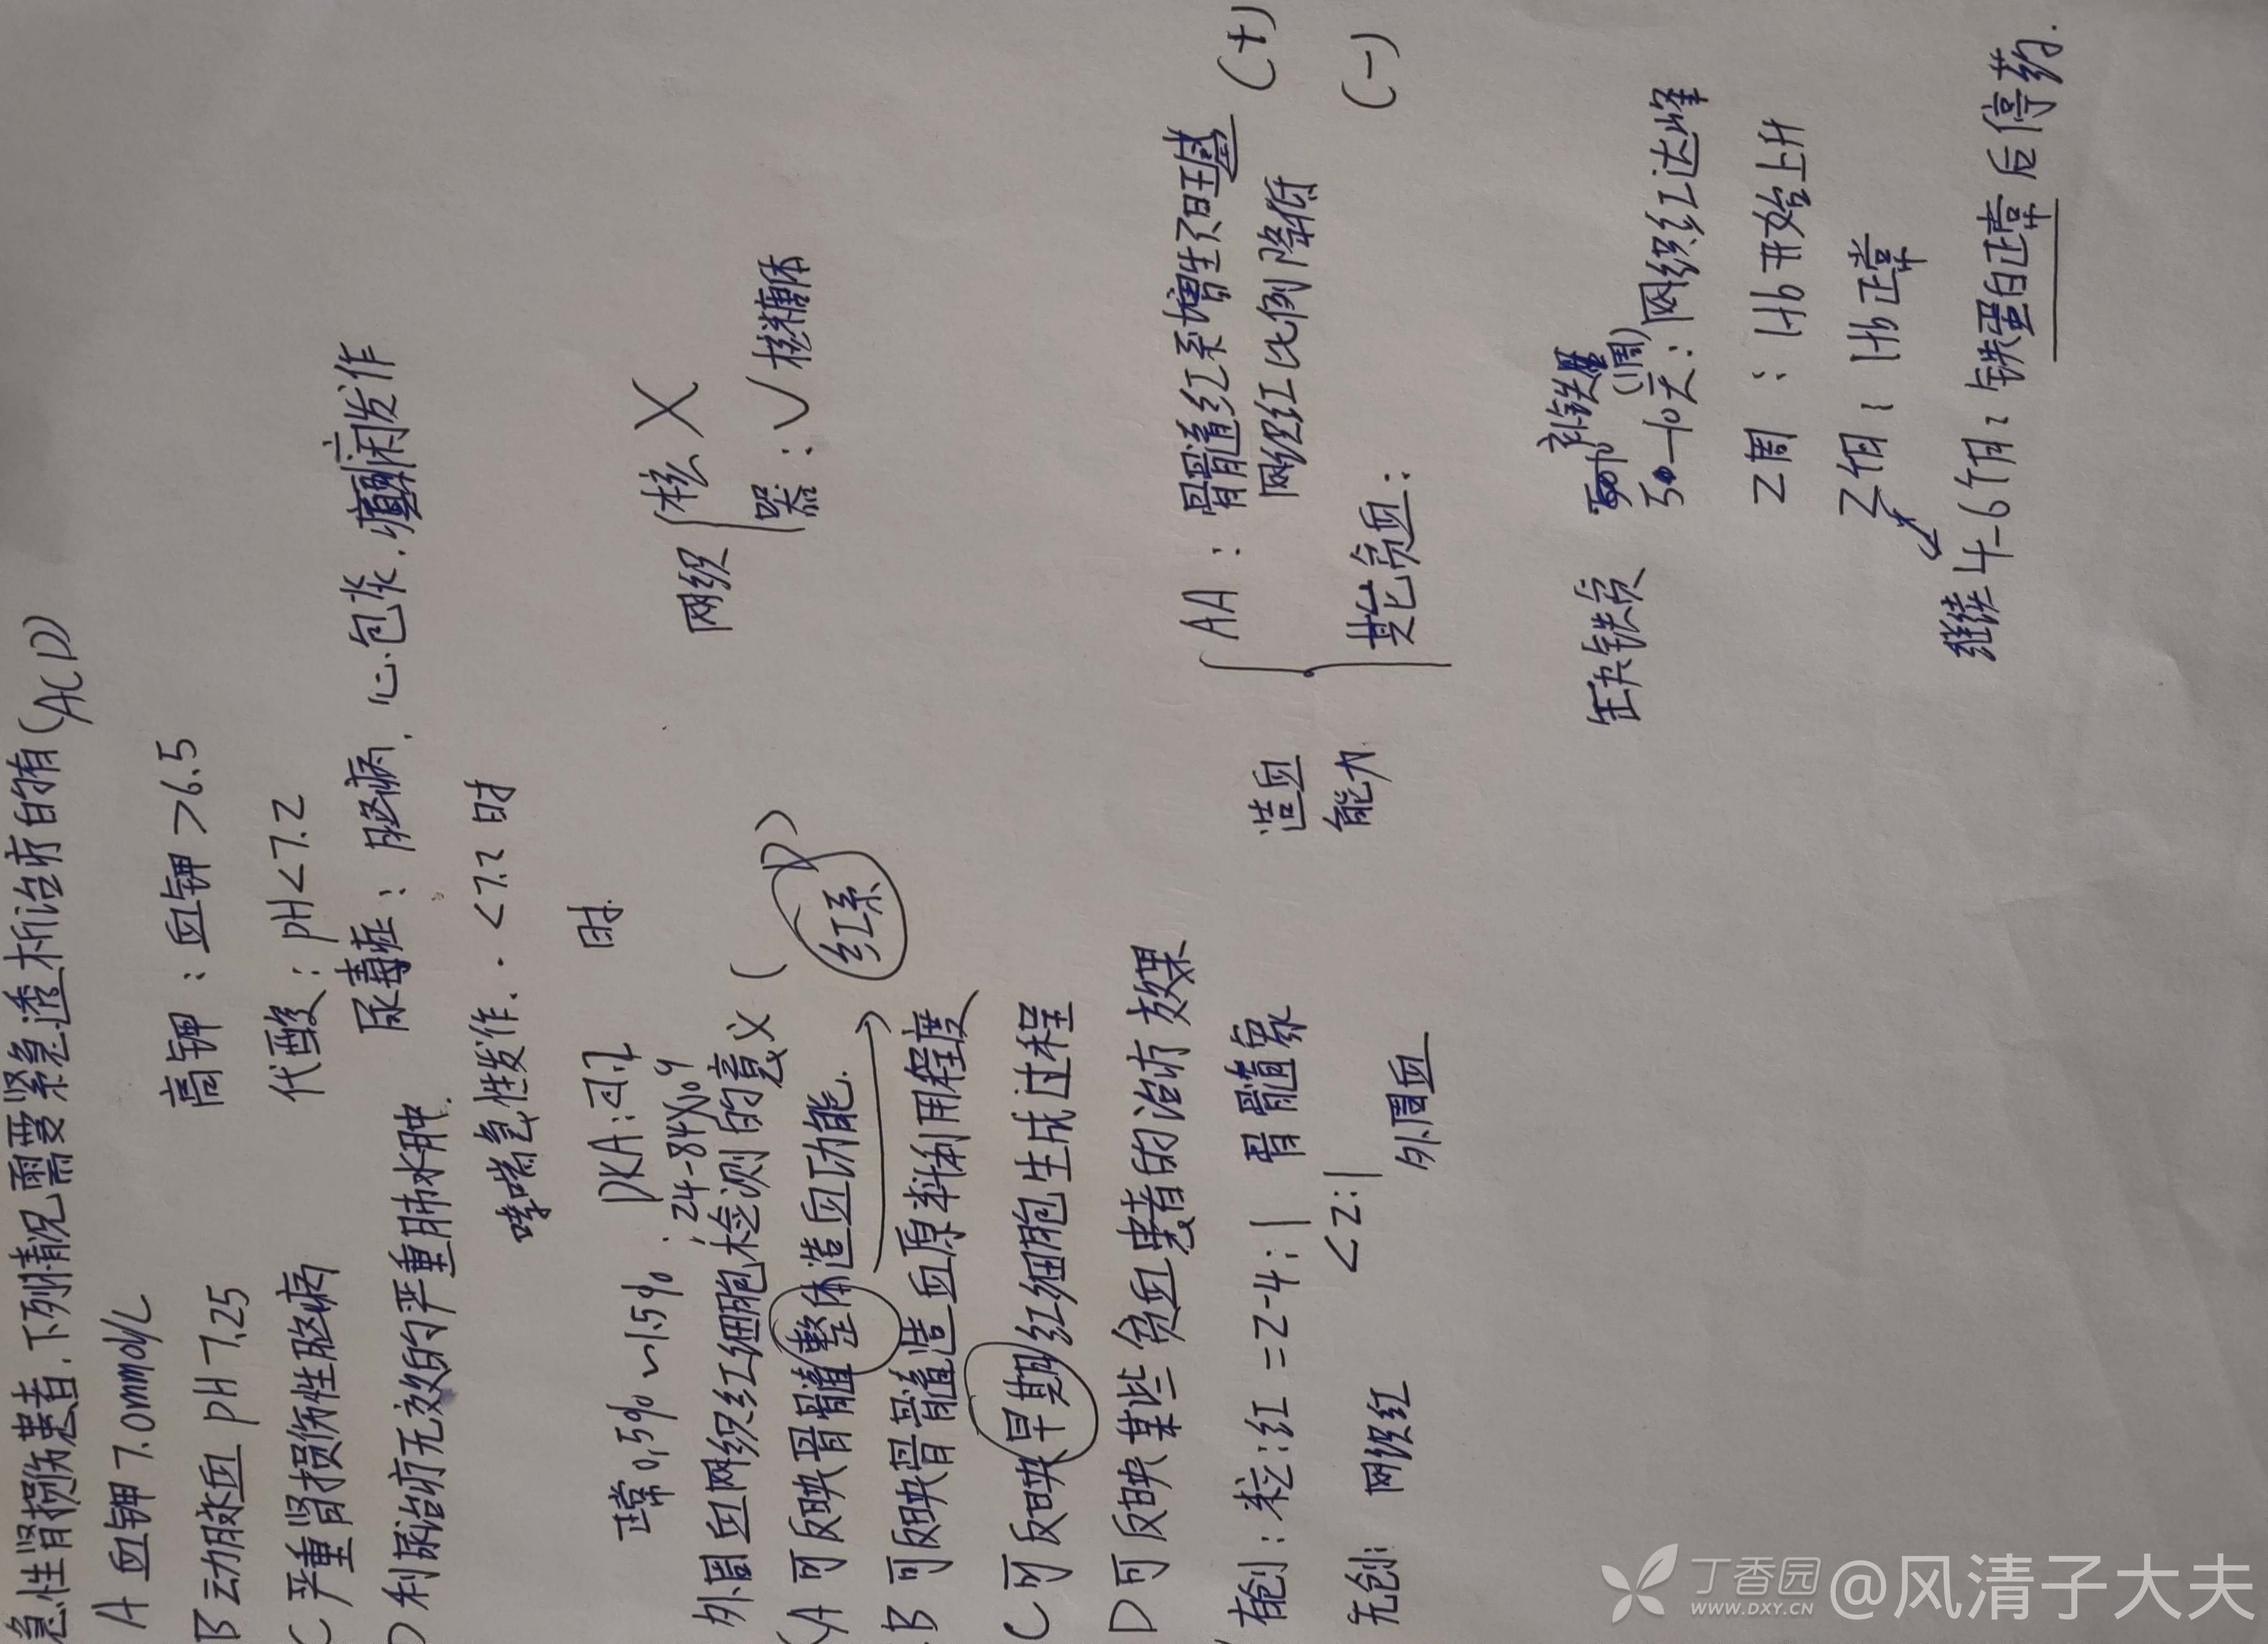 急性肾损伤患者,下列情况需要紧急透析治疗的有(ACD)
A 血钾 7.0mmol/L
高钾:血钾 >6.5
B 动脉血 pH 7.25
代酸:pH<7.2
C 严重肾损伤性脑病
尿毒症:脑病、心包炎、癫痫发作
D 利尿治疗无效的严重肺水肿.
哮喘急性发作.
<7.2 时
DKA:
时.
正常 0.5% ~1.5%.
:24-84×10^9
外周血网织红细胞检测的意义(D)
网织{核 X
器:√ 核糖体
A 可反映骨髓整体造血功能.
→红系
B 可反映骨髓造血原料利用程度
C 可反映早期红细胞生成过程
D 可反映某些贫血患者的治疗效果
有创:粒:红=2-4:1 骨髓象
<2:1
无创:网织红
外周血
造血
能力
AA:骨髓红系增生旺盛 (+)
网织红比例降低
其它贫血: (-)
缺铁贫
补铁
5-10天:网织红达峰
(1周)
2周:Hb开始上升
2个月:Hb正常
继续4-6个月:铁蛋白正常后停药.
丁香园
WWW.DXY.CN
@风清子大夫